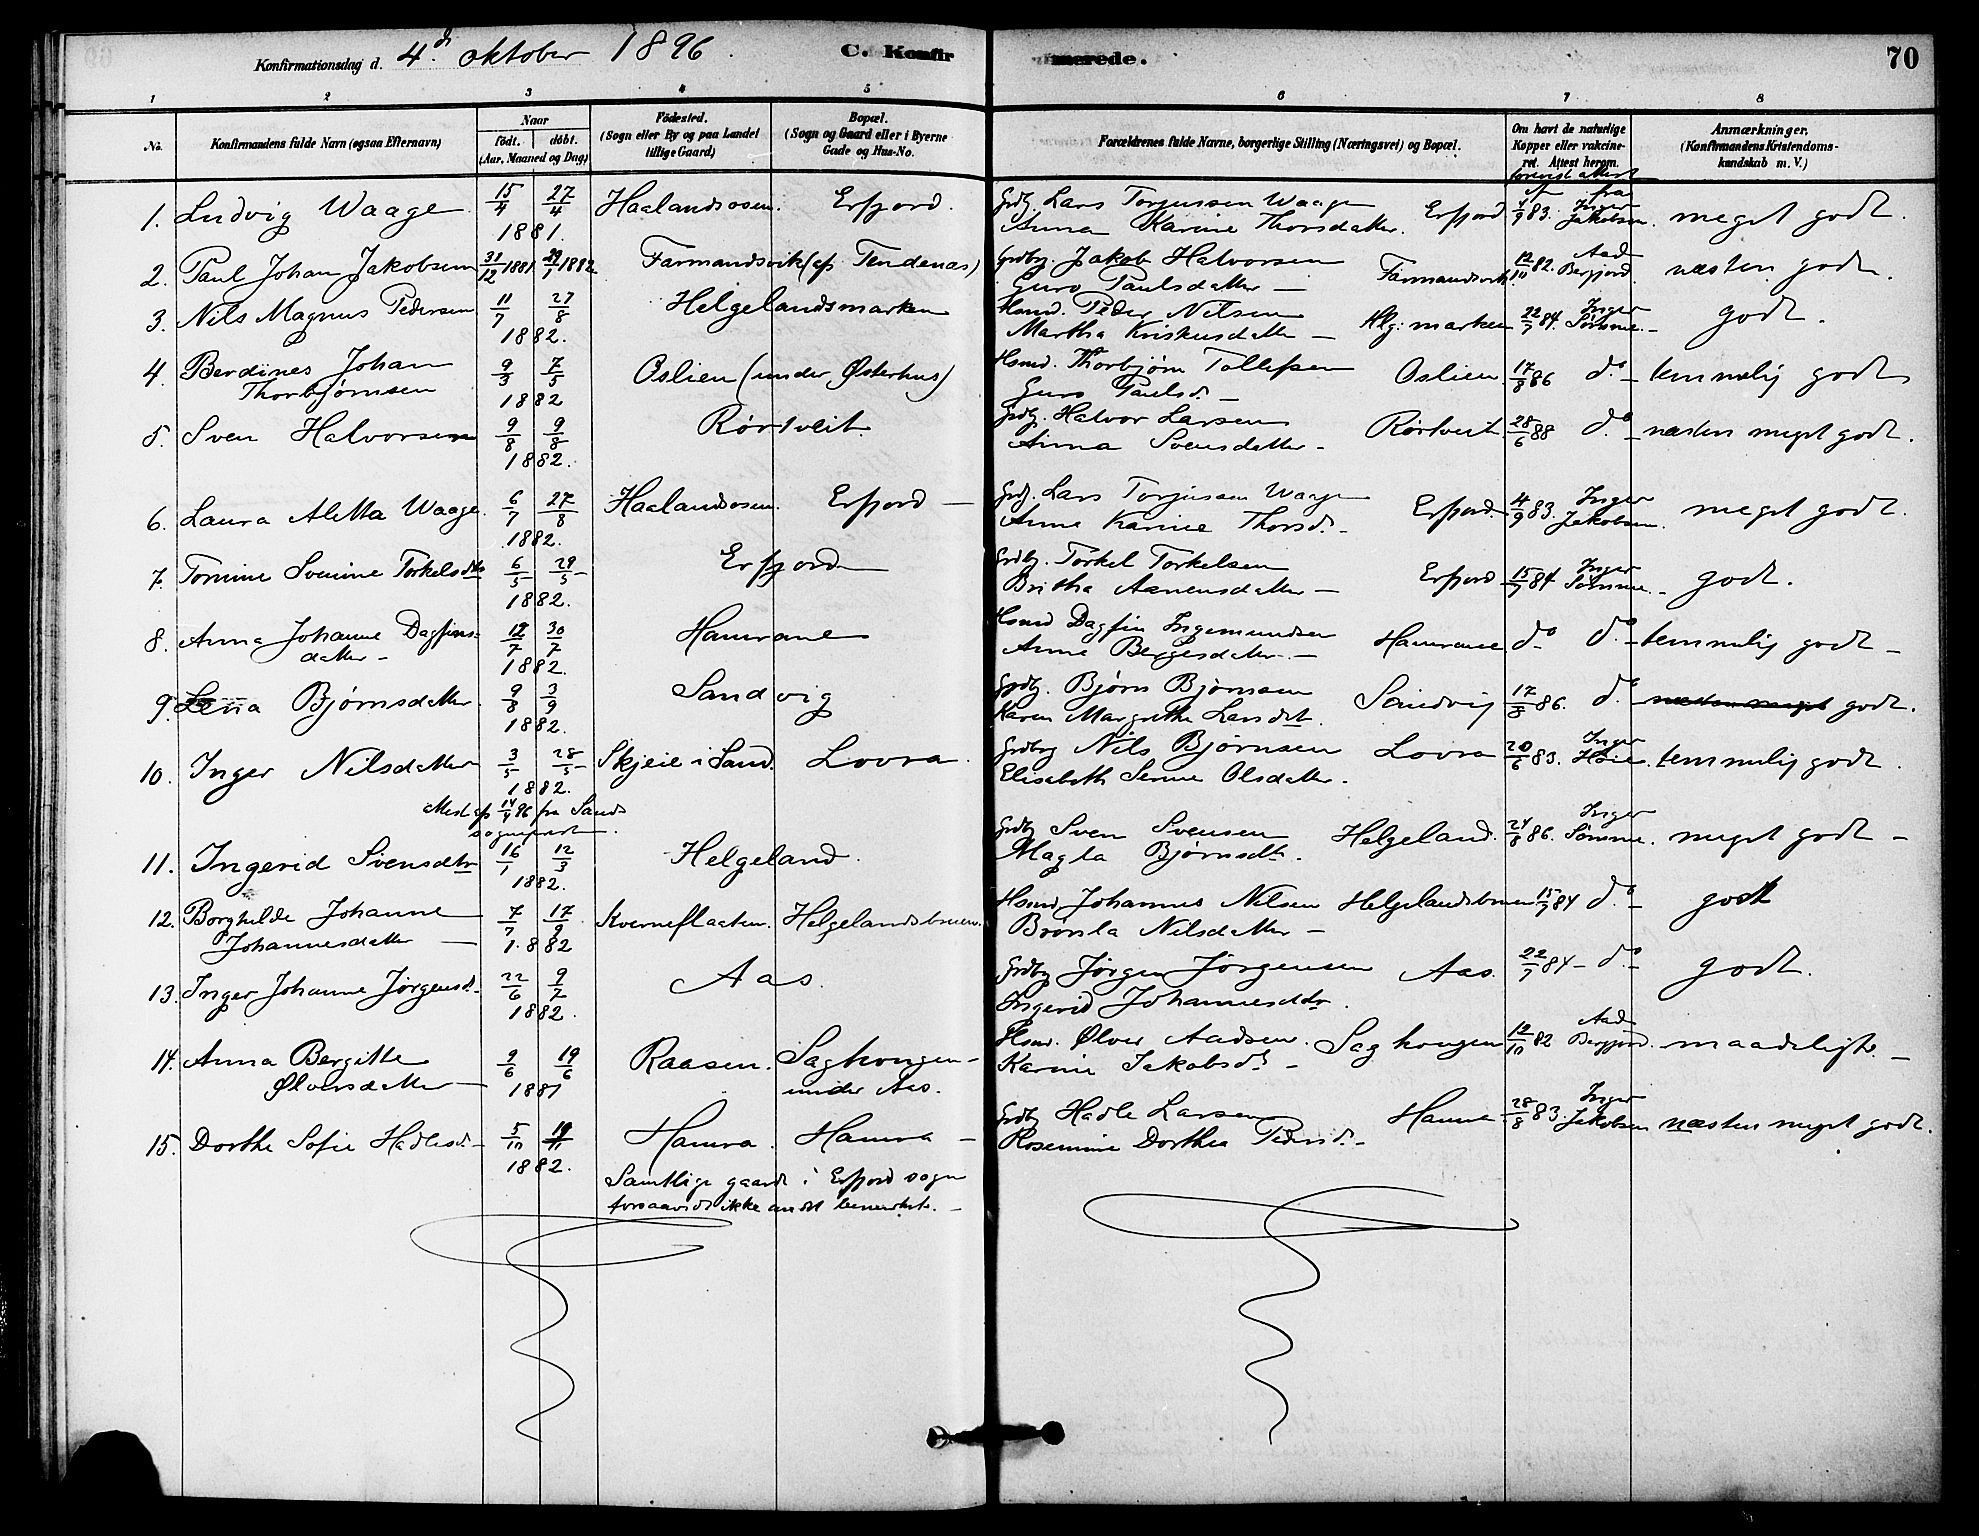 Konfirmationsdag d. 4de oktober 1896. C. Konfirmerede. 70
1 2 3 4 5 6 7 8
No. Konfirmandens fulde Navn (ogsaa Efternavn) Naar født. døbt. (Aar, Maaned og Dag) Fødested. (Sogn eller By og paa Landet tillige Gaard) Bopæl. (Sogn og Gaard eller i Byerne Gade og Hus-No. Forældrenes fulde Navne, borgerlige Stilling (Næringsvei) og Bopæl. Om havt de naturlige Kopper eller vaccineret. Attest herom. Anmærkninger. (Konfirmandens Kristendomskundskab m. V.)
forevist attest
1. Ludvig Waage 15/4 27/4 1881. Haalandsosen. Erfjord. Grdbg. Lars Torjussen Waage Erfjord 4/9 83. fra Inger Jakobsen. meget godt.
Anna Karine Thorsdatter.
2. Paul Johan Jakobsen 31/12 1881 29/1 1882 Farmandsvik (af Tendenæs) Grdbg. Jakob Halvorsen Farmandsvik 12/10 82. Aad Bergjord næsten godt.
Guro Paulsdatter —
3. Nils Magnus Pedersen 11/7 27/8 1882. Helgelandsmarken Hsmd. Peder Nilsen Hlg: marken 22/7 84. Inger Sømme. godt.
Martha Kristensdatter —
4. Berdines Johan Thorbjørnsen 9/3 7/5 1882 Oslien (under Østerhus) Hsmd. Thorbjørn Tollefsen Oslien 17/8 86 do — temmelig godt
Guro Paulsd. —
5. Sven Halvorsen 9/8 9/8 1882. Rørtveit Grdbg. Halvor Larsen Rørtveit 28/6 88 do — næsten meget godt.
Anna Svensdatter —
6. Laura Aletta Waage. 6/7 27/8 1882. Haalandsosen. Erfjord — Grdbg. Lars Torjussen Waage Erfjord. 4/9 83. Inger Jakobsen. meget godt.
Anne Karine Thorsd. —
7. Tomine Svenine Torkelsdtr 6/5 29/5 1882. Erfjord — Grdbg. Torkel Torkelsen Erfjord 15/7 84 Inger Sømme. godt.
Britha Aanensdatter —
8. Anna Johanne Dagfinsdatter — 12/7 30/7 1882. Hamrane Hsmd Dagfin Ingemundsen Hamrane do do — temmelig godt —
Anne Bergesdatter. —
9. Lena Bjørnsdatter 9/8 3/9 1882. Sandvig Grdbg. Bjørn Bjørnsen Sandvig 17/8 86. do næsten meget godt.
Karen Margrethe Larsdt.
10. Inger Nilsdatter 3/5 28/5 1882. Skjeie i Sand. Lovra. Grdbrg Nils Bjørnsen Lovra 20/6 83. Inger Høie. temmelig godt.
Elisabeth Serine Olsdatter.
Attest af 14/4 96 fra Sands sogneprest.
11. Ingerid Svensdtr 16/1 12/3 1882. Helgeland. Grdbg Sven Svensen Helgeland. 24/8 86. Inger Sømme. meget godt —
Magla Bjørnsdt.
12. Borghilde Johanne 7/7 17/9 1882 Kverneflaaten. Helgelandsbruen. Hsmd Johannes Nilsen Helgelandsbruen 15/7 84 do — godt
Johannesdatter — Brønla Nilsdatter —
13. Inger Johanne Jørgensd. 22/6 9/7 1882. Aas. Grdbg Jørgen Jørgensen Aas. 22/7 84 — do — godt.
Ingerid Johannesdtr.
14. Anna Bergitte 9/6 19/6 1881 Raasen. Saghougen — Hsmd. Ølver Aadsen. Saghougen 12/10 82 Aad Bergjord. maadeligt. —
Ølversdatter — under Aas. Karine Jakobsd. —
15. Dorthe Sofie Hadlesd. — 5/10 19/11 1882. Hamra. Hamra — Grdbg Hadle Larsen Hamra 28/8 83. Inger Jakobsen næsten meget godt.
Rosemine Dorthea Pedersd. —
Samtlige gaarde i Erfjord sogn
forsaavidt ikke andet bemerket. —